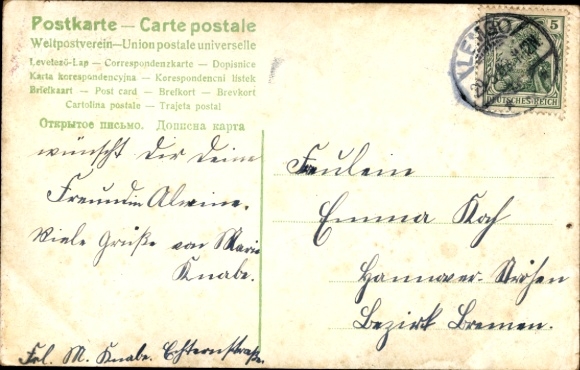 Postkarte — Carte postale
Weltpostverein — Union postale universelle
Levelező-Lap — Correspondenzkarte — Dopisnice
Karta korespondencyjna — Korespondenční lístek
Briefkaart — Post card — Brefkort — Brevkort
Cartolina postale — Trajeta postal
Открытое письмо. Дописна карта
wünscht Dir Deine
Freundin Alwine.
Viele Grüße von Marie
Knabe.
Frl. M. Knabe. Echternstraße.
LEMGO
5
DEUTSCHES REICH
Freulein
Emma Koch
Hannover-
Bezirk Bremen.